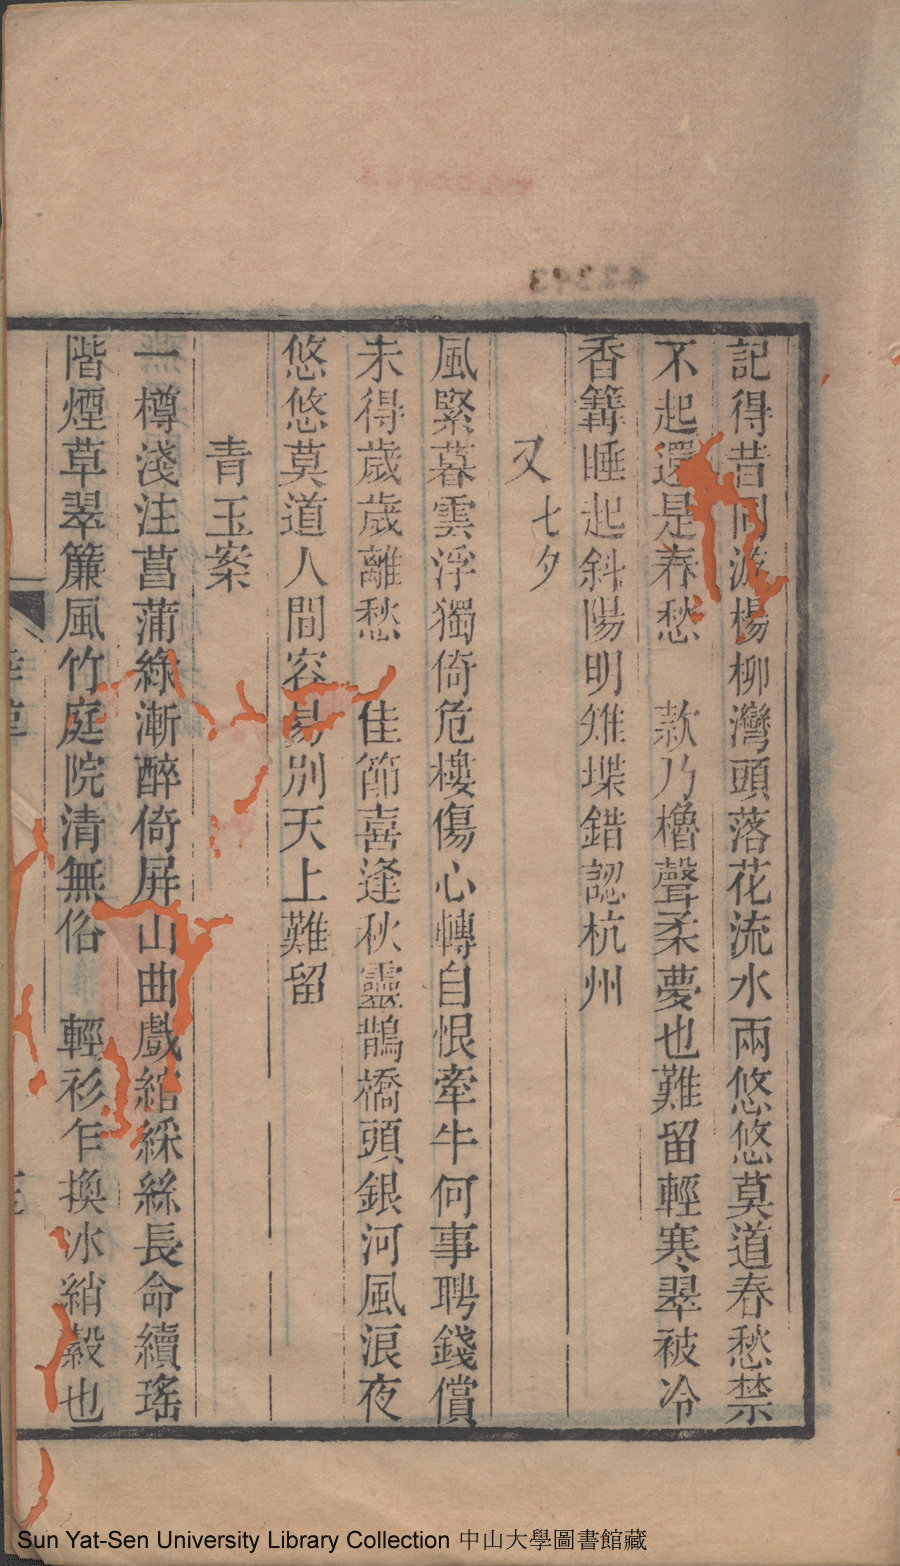 記得昔同游楊柳灣頭落花流水兩悠悠莫道春愁禁
不起還是春愁　款乃櫓聲柔夢也難留輕寒翠被冷
香篝睡起斜陽明雉堞錯認杭州
又七夕
風緊暮雲浮獨倚危樓傷心轉自恨牽牛何事聘錢償
未得歲歲離愁　佳節喜逢秋靈鵲橋頭銀河風浪夜
悠悠莫道人間容易別天上難留
青玉案
一樽淺注菖蒲綠漸醉倚屏山曲戲綰綵絲長命續瑤
階煙草翠簾風竹庭院清無俗　輕衫乍換冰綃縠也
Sun Yat-Sen University Library Collection 中山大學圖書館藏